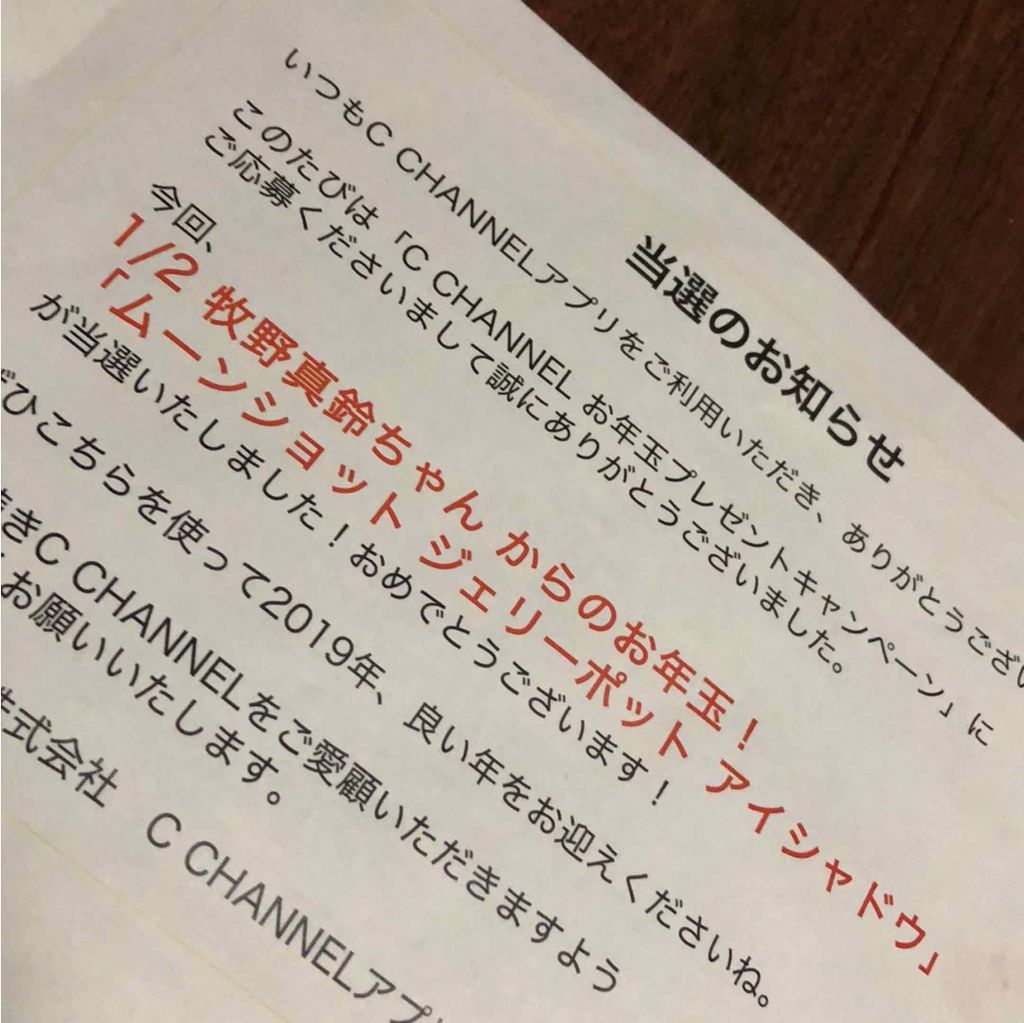 当選のお知らせ
いつもC CHANNELアプリをご利用いただき、ありがとうござい
このたびは「C CHANNEL お年玉プレゼントキャンペーン」に
ご応募くださいまして誠にありがとうございました。
今回、
1/2 牧野真鈴ちゃん からのお年玉!
「ムーンショット ジェリーポット アイシャドウ」
が当選いたしました!おめでとうございます!
ぜひこちらを使って2019年、良い年をお迎えくださいね。
きC CHANNELをご愛顧いただきますよう
お願いいたします。
株式会社 C CHANNELアプ